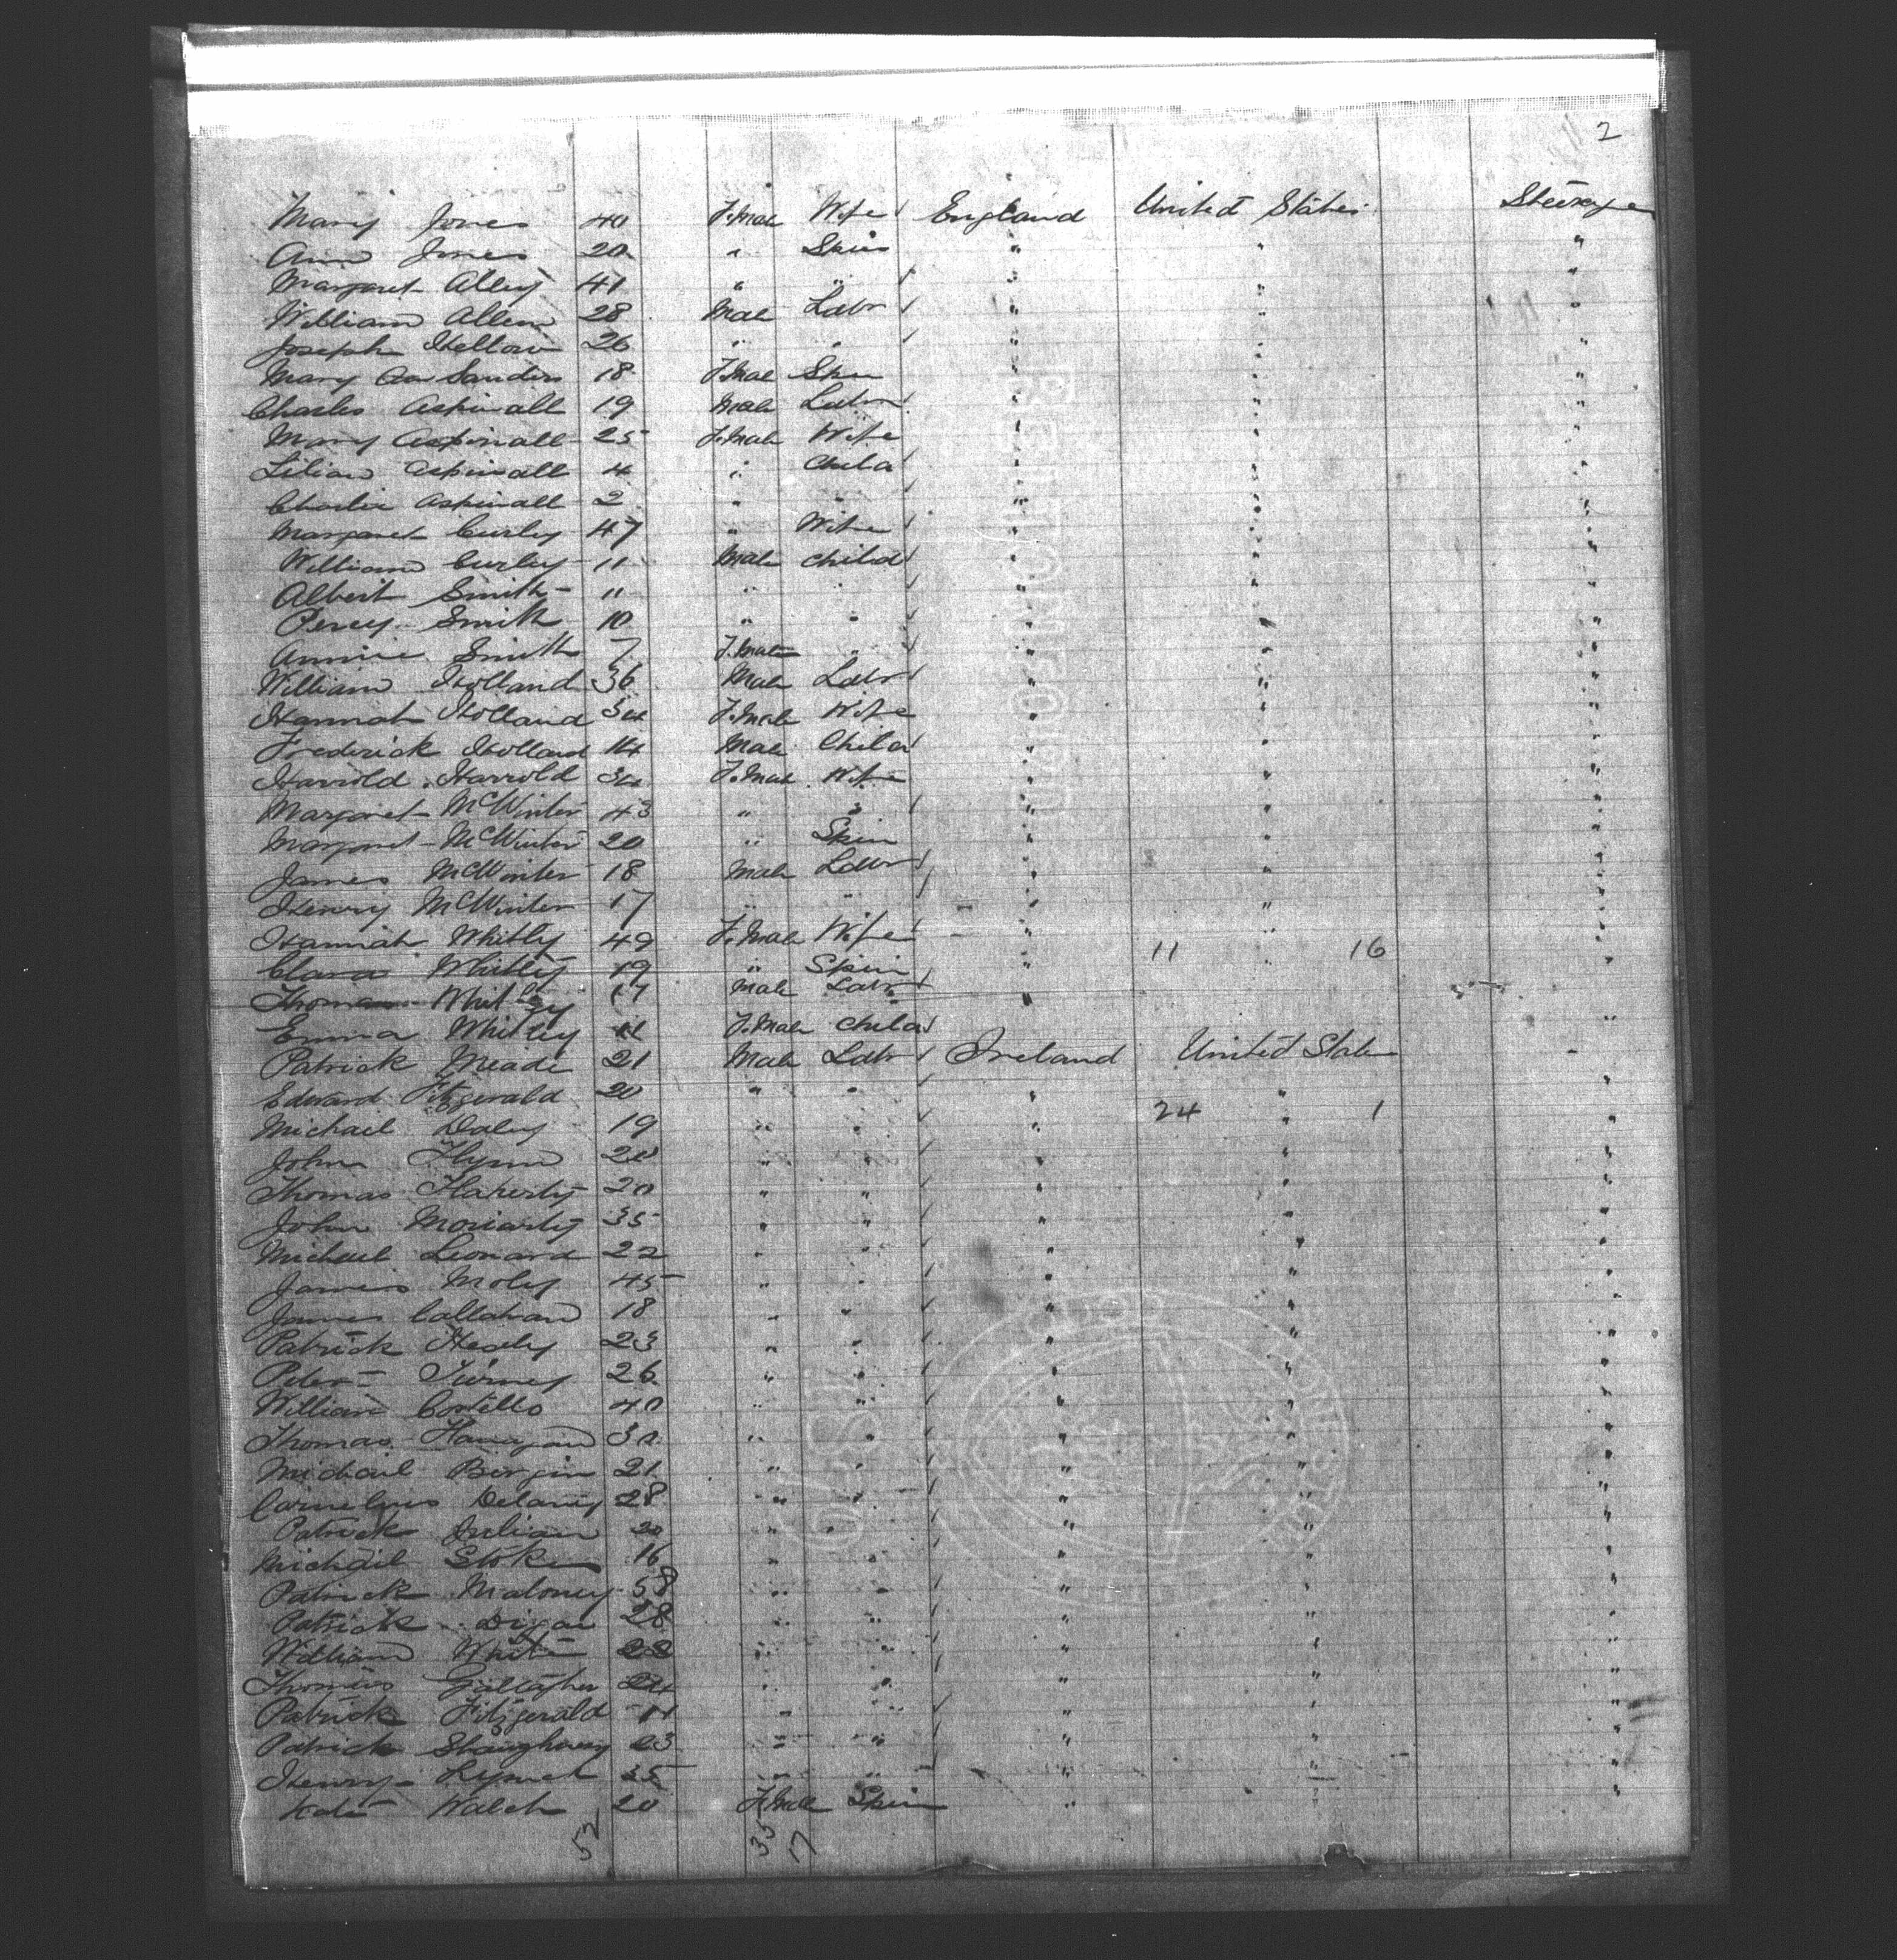 2
Mary Jones 40 F.Male Wife England United States Steerage
Ann Jones 20 " Spin " " "
Margaret Alley 41 " " " " "
William Allen 28 Male Labr " " "
Joseph 26 " " " " "
Mary Ann Sanders 18 F.Male Spin " " "
Charles Aspinall 19 Male Labr " " "
Mary Aspinall 25 F.Male Wife " " "
Lilian Aspinall 4 " Child " " "
Charlie Aspinall 2 " " " " "
Margaret Curley 47 " Wife " " "
William Curley 11 Male Child " " "
Albert Smith 11 " " " " "
Percy Smith 10 " " " " "
Annie Smith 7 F.Male " " " "
William Holland 36 Male Labr " " "
Hannah Holland 34 F.Male Wife " " "
Frederick Holland 14 Male Child " " "
Harrold Harrold F.Male Wife " " "
Margaret McWinter 43 " " " " "
Margaret McWinter 20 " Spin " " "
James McWinter 18 Male Labr " " "
Henry McWinter 17 " " " " "
Hannah Whitly 49 F.Male Wife " " "
Clara Whitley 19 " Spin " 11 " 16 "
Thomas Whitley 17 Male Labr "
Emma Whitley 11 F.Male Child "
Patrick Meade 21 Male Labr Ireland United States "
Edward Fitzgerald 20 " " " "
Michael Daley 19 " " " 24 " 1 "
John Flynn 20 " " " " "
Thomas Flaherty 20 " " " " "
John Moriarty 35 " " " " "
Michael Leonard 22 " " " " "
James Moly 45 " " " " "
James Callahan 18 " " " " "
Patrick Healy 23 " " " " "
Peter Tierney 26 " " " " "
William Costello 40 " " " " "
Thomas Flanagan 30 " " " " "
Michael Bergin 21 " " " " "
Cornelius Delany 28 " " " " "
Patrick Julian 20 " " " " "
Michael Stokes 16 " " " " "
Patrick Maloney 58 " " " " "
Patrick 28 " " " " "
William White 28 " " " " "
Thomas Gallagher 24 " " " " "
Patrick Fitzgerald 11 " " " " "
Patrick Shaughnessy 23 " " " " "
Henry Lynch 35 " " " " "
Kate Walch 20 F.Male Spin " " "
52 35 17